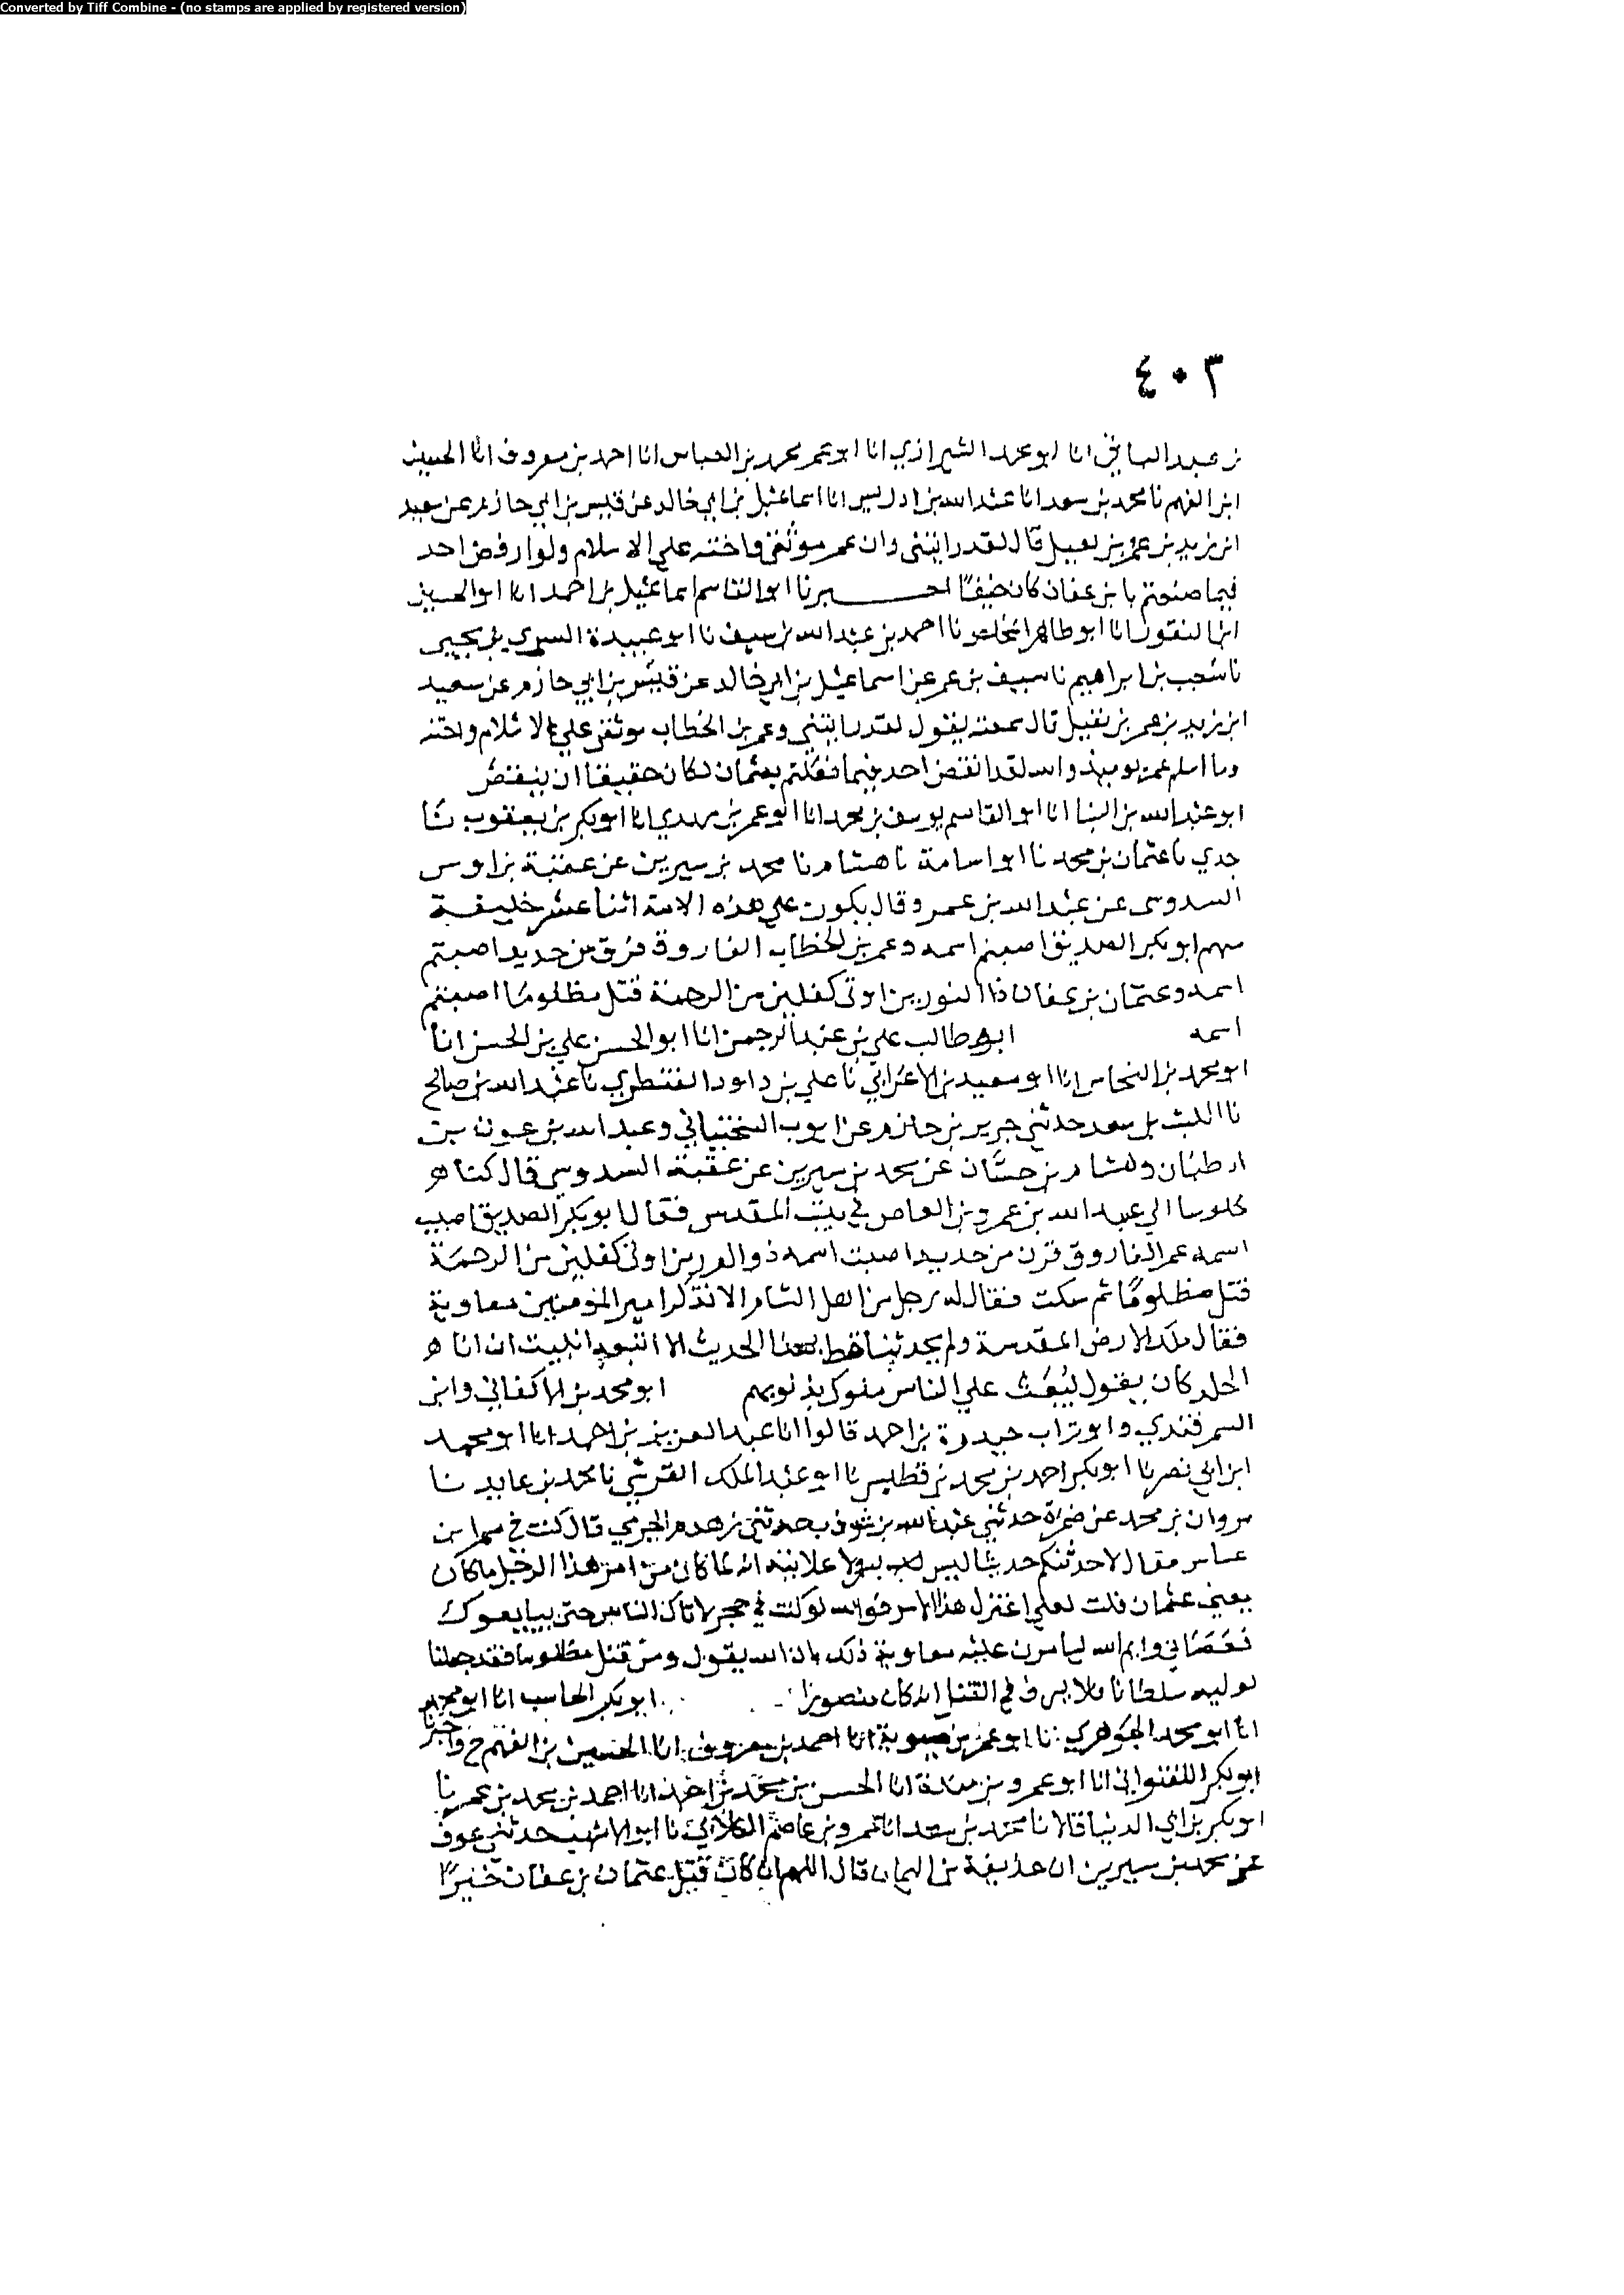 Converted by Tiff Combine - (no stamps are applied by registered version)
٤٠٣
بن عبد الباقي انا ابو محمد الشيرازي انا ابو عمر محمد بن العباس انا احمد بن معروف انا الحسين
ابن الفهم نا محمد بن سعد انا عبد الله بن ادريس انا اسماعيل بن ابي خالد عن قيس بن ابي حازم عن سعيد
ابن زيد بن عمرو بن نفيل قال لقد رايتني وان عمر موثقي واخته على الاسلام ولو ارفض احد
فيما صنعتم بابن عفان كان حقيقا اخبرنا ابو القاسم اسماعيل بن احمد انا ابو الحسين
ابن النقور انا ابو طاهر المخلص نا احمد بن عبد الله بن سيف نا ابو عبيدة السري بن يحيى
نا شعيب بن ابراهيم نا سيف بن عمر عن اسماعيل بن ابي خالد عن قيس بن ابي حازم عن سعيد
ابن زيد بن عمر بن نفيل قال سمعته يقول لقد رايتني وعمر بن الخطاب موثقي على الاسلام واخته
وما اسلم عمر يوميذ والله لقد انقض احد فيما فعلتم بعثمان لكان حقيقا ان ينقض
ابو عبد الله بن البنا انا ابو القاسم يوسف بن محمد انا ابو عمر بن مهدي انا ابو بكر بن يعقوب نا
جدي نا عثمان بن محمد نا ابو اسامة نا هشام نا محمد بن سيرين عن عقبة بن اوس
السدوسي عن عبد الله بن عمرو قال يكون على هذه الامة اثنا عشر خليفة
منهم ابو بكر الصديق اصبتم اسمه وعمر بن الخطاب الفاروق قرن من حديد اصبتم
اسمه وعثمان بن عفان ذا النورين اوتي كفلين من الرحمة قتل مظلوما اصبتم
اسمه ابو طالب علي بن عبد الرحمن انا ابو الحسن علي بن الحسن انا
ابو محمد بن النحاس انا ابو سعيد بن الاعرابي نا علي بن داود القنطري نا عبد الله بن صالح
نا الليث بن سعد حدثني جرير بن حازم عن ايوب السختياني وعبد الله بن عون بن
ارطبان وهشام بن حسان عن محمد بن سيرين عن عقبة السدوسي قال كنا هو
جلوسا الى عبد الله بن عمرو بن العاص في بيت المقدس فقال ابو بكر الصديق اصبت
اسمه عمر الفاروق قرن من حديد اصبت اسمه ذو النورين اوتي كفلين من الرحمة
قتل مظلوما ثم سكت فقال له رجل من اهل الشام الا تذكر امير المؤمنين معاوية
فقال ملك الارض المقدسة ولم يحدثنا قط بهذا الحديث الا
كان يقول ليبعث على الناس ملوك بذنوبهم ابو محمد بن الاكفاني وابن
السمرقندي وابو تراب حيدرة بن احمد قالوا انا عبد العزيز بن احمد انا ابو محمد
ابن ابي نصر نا ابو بكر احمد بن محمد بن فطيس نا ابو عبد الملك القرشي نا محمد بن عايد نا
مروان بن محمد عن ضمرة حدثني عبد الله بن شوذب حدثني زهدم الجرمي قال كنت في سمر ابن
عباس فقال لاحدثنكم حديثا ليس بسر ولا علانية انه لما كان من امر هذا الرجل ما كان
يعني عثمان قلت لعلي اعتزل هذا الامر فوالله لو كنت في جحر لاتاك الناس حتى يبايعوك
فعصاني وايم الله ليامرن عليه معاوية ذلك بان الله يقول ومن قتل مظلوما فقد جعلنا
لوليه سلطانا فلا يسرف في القتل انه كان منصورا ابو بكر الحاسب انا ابو محمد
انا ابو محمد الجوهري نا ابو عمر بن حيوية انا احمد بن معروف انا الحسين بن الفهم ح واخبرنا
ابو بكر اللفتواني انا ابو عمرو بن مندة انا الحسن بن محمد بن احمد انا احمد بن محمد بن عمر نا
ابو بكر بن ابي الدنيا قالا نا محمد بن سعد انا عمرو بن عاصم الكلابي نا ابو الاشهب حدثني عوف
عن محمد بن سيرين ان حذيفة بن اليمان قال اللهم ان كان قتل عثمان بن عفان خيرا